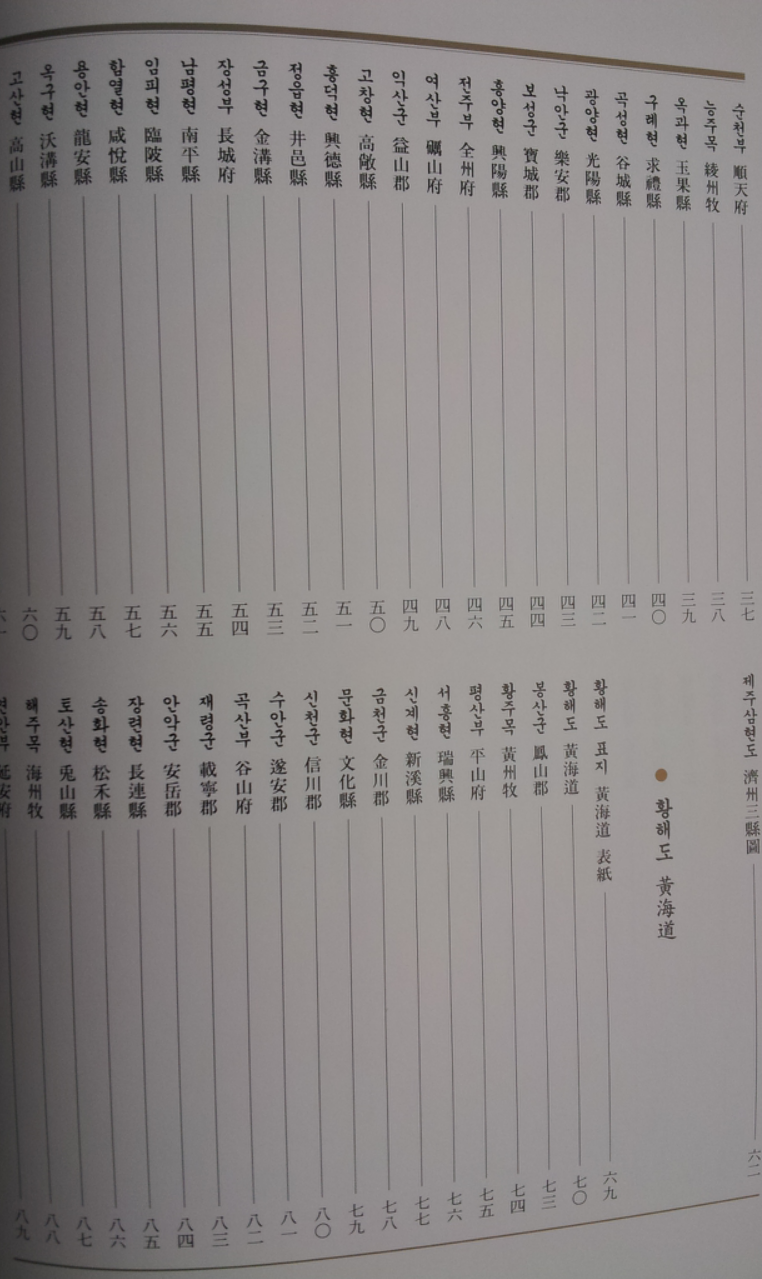 순천부 順天府 三七
능주목 綾州牧 三八
옥과현 玉果縣 三九
구례현 求禮縣 四〇
곡성현 谷城縣 四一
광양현 光陽縣 四二
낙안군 樂安郡 四三
보성군 寶城郡 四四
흥양현 興陽縣 四五
전주부 全州府 四六
여산부 礪山府 四八
익산군 益山郡 四九
고창현 高敞縣 五〇
흥덕현 興德縣 五一
정읍현 井邑縣 五二
금구현 金溝縣 五三
장성부 長城府 五四
남평현 南平縣 五五
임피현 臨陂縣 五六
함열현 咸悅縣 五七
용안현 龍安縣 五八
옥구현 沃溝縣 五九
고산현 高山縣 六〇
제주삼현도 濟州三縣圖 六二
● 황해도 黃海道
황해도 표지 黃海道 表紙 六九
황해도 黃海道 七〇
봉산군 鳳山郡 七三
황주목 黃州牧 七四
평산부 平山府 七五
서흥현 瑞興縣 七六
신계현 新溪縣 七七
금천군 金川郡 七八
문화현 文化縣 七九
신천군 信川郡 八〇
수안군 遂安郡 八一
곡산부 谷山府 八二
재령군 載寧郡 八三
안악군 安岳郡 八四
장련현 長連縣 八五
송화현 松禾縣 八六
토산현 兎山縣 八七
해주목 海州牧 八八
연안부 延安府 八九